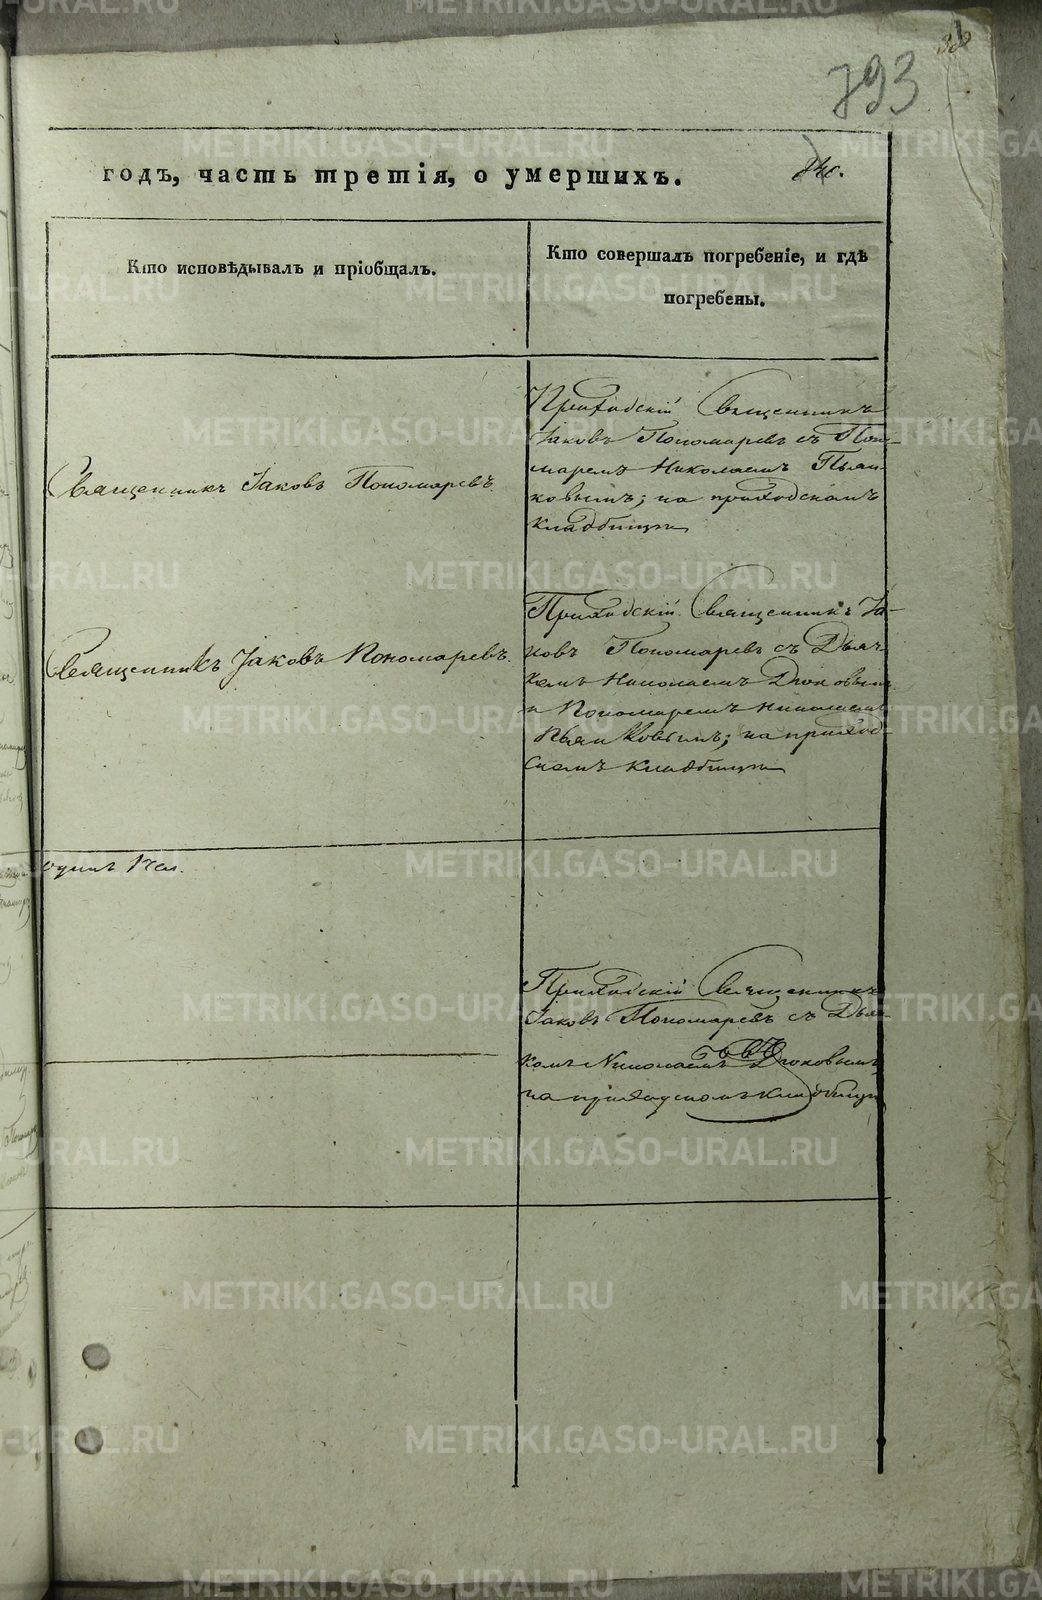 793
годъ, часть третія, о умершихъ.
Кто исповѣдывалъ и пріобщалъ.
Кто совершалъ погребеніе, и гдѣ
погребены.
Приходскій Священникъ
Іаковъ Пономаревъ съ Поно-
маремъ Николаемъ Пьян-
ковымъ; на приходскомъ
кладбищѣ
Священникъ Іаковъ Пономаревъ.
Приходскій Священникъ Іа-
ковъ Пономаревъ съ Дьяч-
комъ Николаемъ Дюковымъ
и Пономаремъ Николаемъ
Пьянковымъ; на приход-
скомъ кладбищѣ
Священникъ Іаковъ Пономаревъ.
одинъ 1 чел.
Приходскій Священникъ
Іаковъ Пономаревъ съ Дьяч-
комъ Николаемъ Дюковымъ,
на приходскомъ кладбищѣ
METRIKI.GASO-URAL.RU